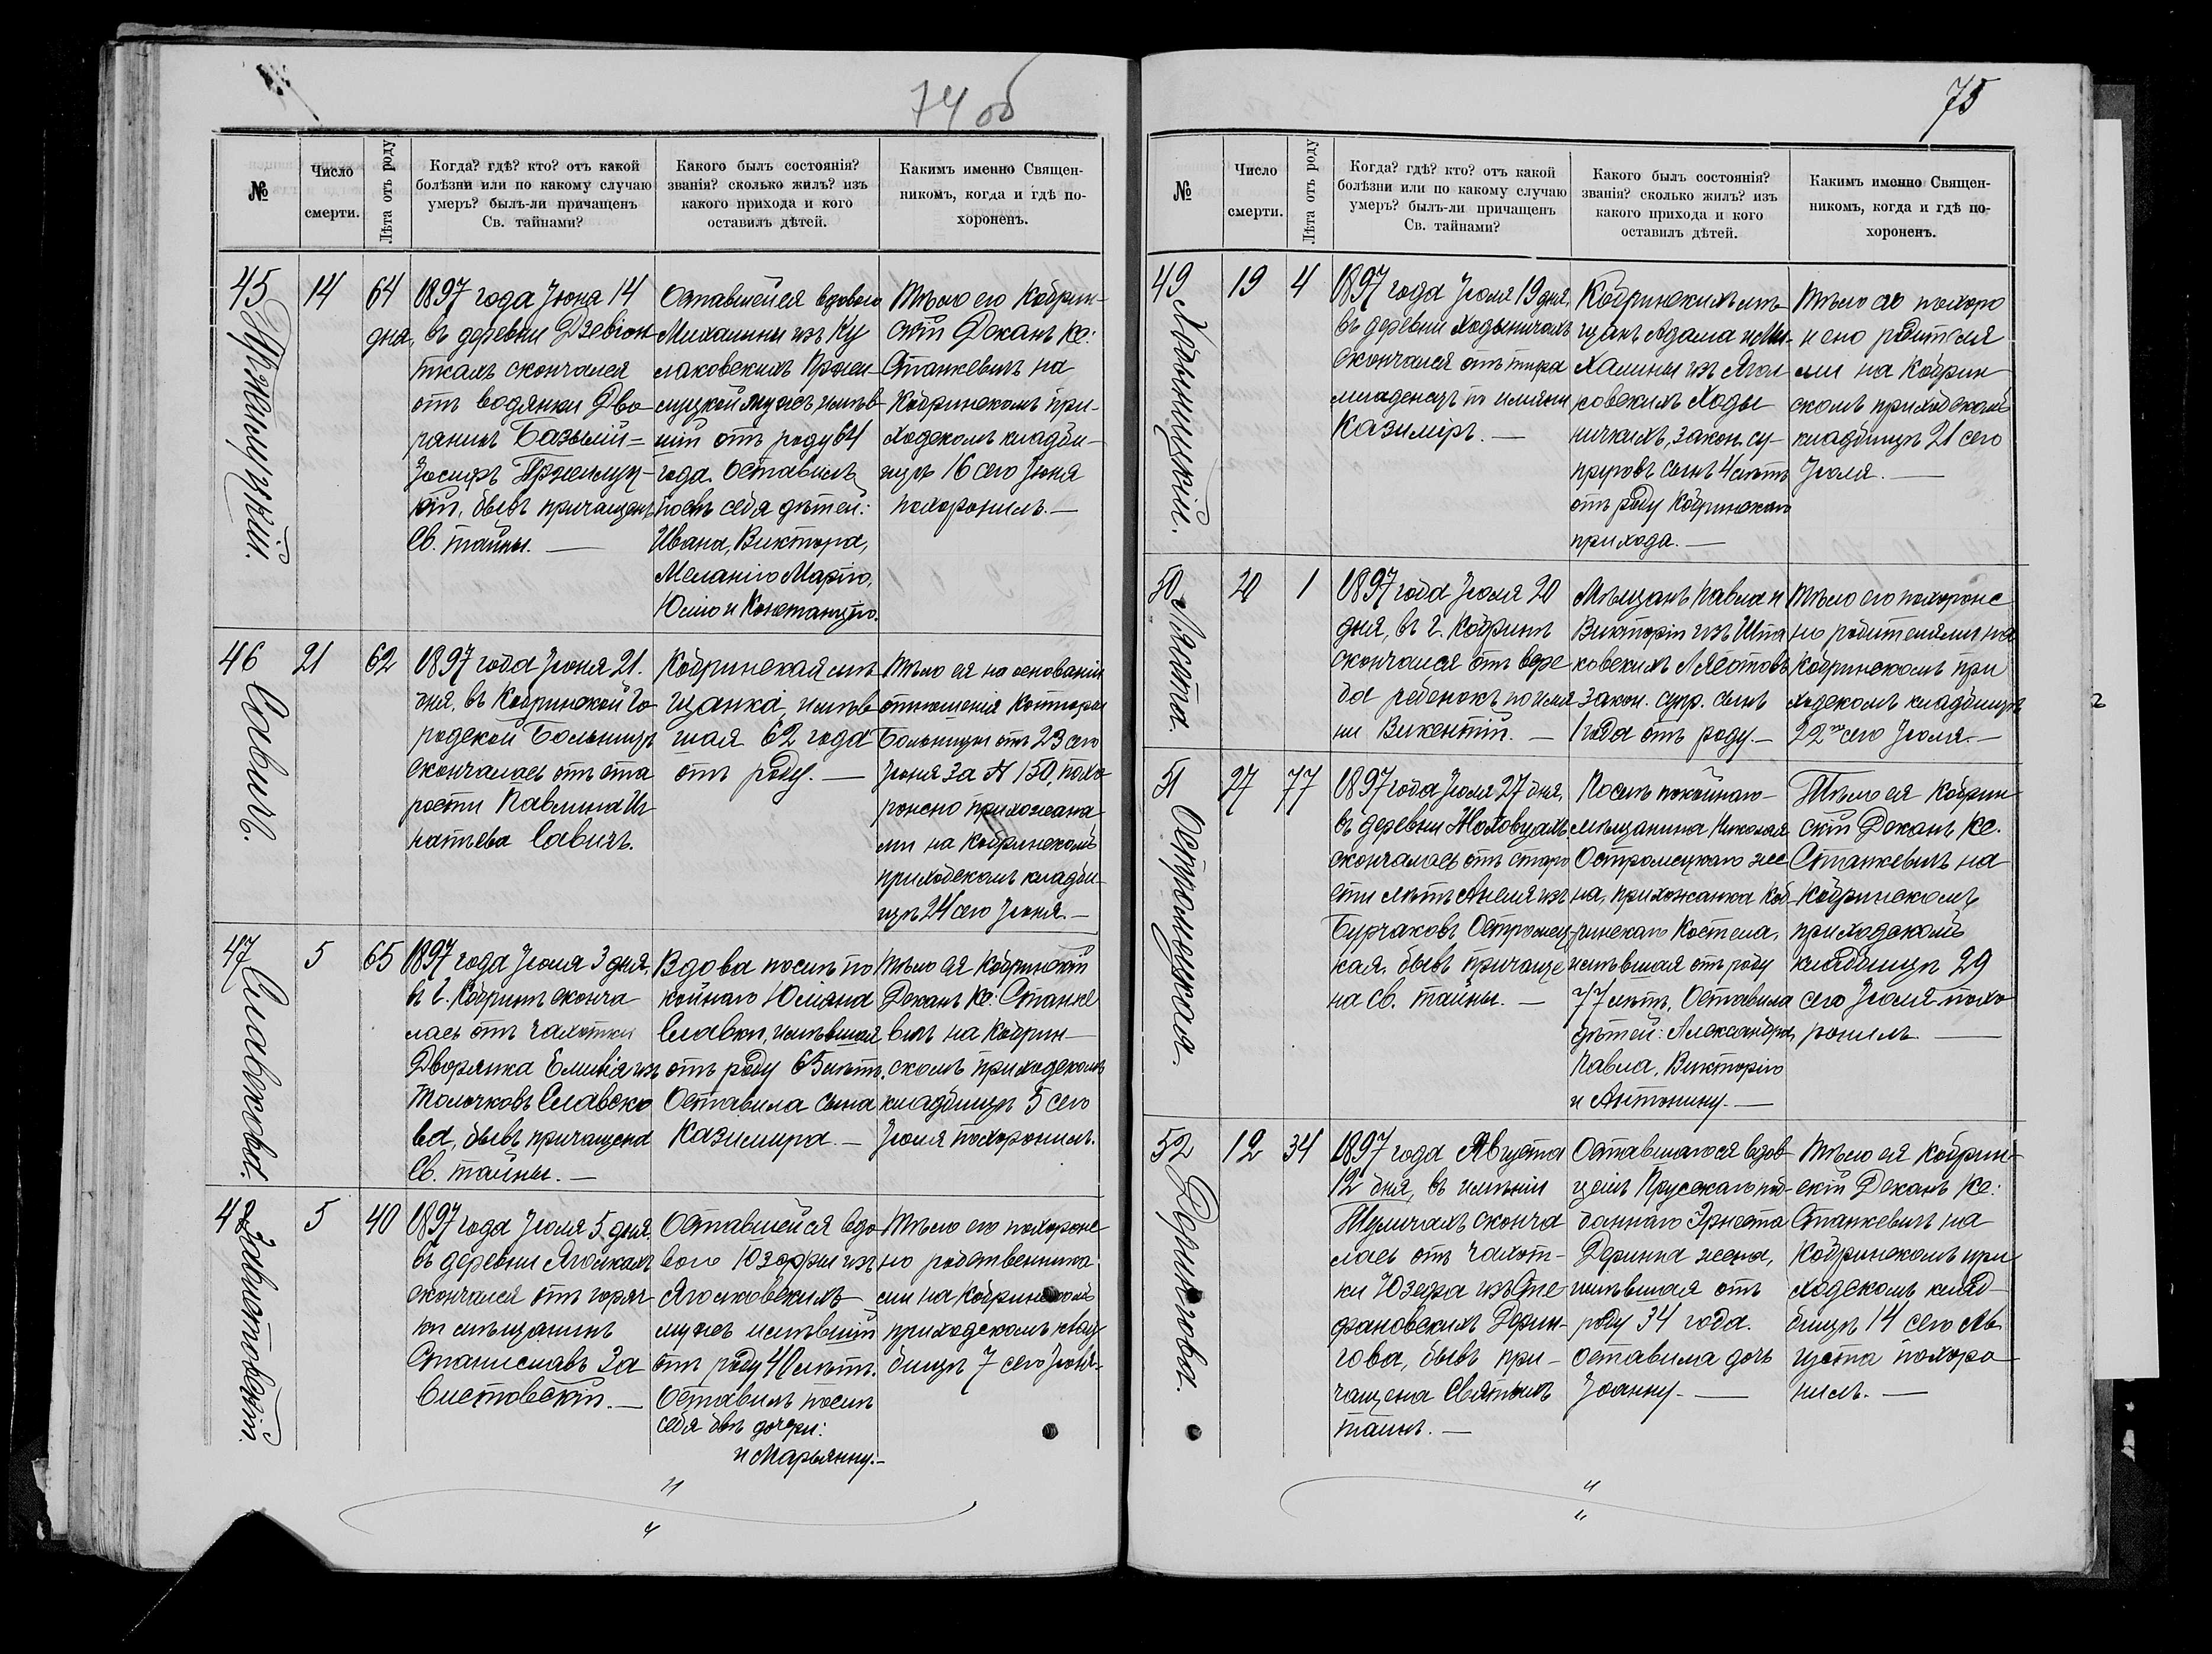 74 об
№
Число
смерти.
Лѣта отъ роду
Когда? гдѣ? кто? отъ какой
болѣзни или по какому случаю
умеръ? былъ-ли причащенъ
Св. тайнами?
Какого былъ состоянія?
званія? сколько жилъ? изъ
какого прихода и кого
оставилъ дѣтей.
Какимъ именно Священ-
никомъ, когда и гдѣ по-
хороненъ.
45
14
64
1897 года Іюня 14
дня, въ деревни Дзевіон
ткахъ скончался
отъ водянки Дво-
рянинъ Базылій=
Іосифъ Пржемуц-
кій, бывъ причащенъ
Св. тайны. —
Оставшейся вдовою
Михалины изъ Ку
лаковскихъ Пржем-
муцкой мужъ имѣв-
шій отъ роду 64
года. Оставилъ
послѣ себя дѣтей:
Ивана, Виктора,
Меланію Марію,
Юлію и Констанцію.
Тѣло его Кобрин-
скій Деканъ Кс:
Станкевичъ на
Кобринскомъ при-
ходскомъ кладби-
щѣ 16 сего Іюня
похоронилъ. —
46
Савичъ.
21
62
1897 года Іюня 21.
дня, въ Кобринской Го-
родской Больницѣ
скончалась отъ ста
рости Павлина Иг
натьева Савичъ.
Кобринская мѣ-
щанка, имѣв-
шая 62 года
отъ роду. —
Тѣло ея на основаніи
отношенія Конторы
Больницы отъ 23 сего
Іюня за № 150, похо
ронено прихожана
ми на Кобринскомъ
приходскомъ кладби-
щѣ 24 сего Іюня. —
47
Славскова.
5
65
1897 года Іюля 3 дня,
въ г. Кобринѣ сконча
лась отъ чахотки
Дворянка Емилія изъ
Толочковъ Славско
ва, бывъ причащена
Св. тайны. —
Вдова послѣ по
койнаго Юліана
Славки, имѣвшая
отъ роду 65 лѣтъ.
Оставила сына
Казимира. —
Тѣло ея Кобринскій
Деканъ Кс: Станке
вичъ на Кобрин-
скомъ приходскомъ
кладбищѣ 5 сего
Іюля похоронилъ.
48
Завистовскій.
5
40
1897 года Іюля 5 дня,
въ деревни Яголкахъ
скончался отъ горяч
ки мѣщанинъ
Станиславъ За
вистовскій. —
Оставшейся вдо
вою Юзефы изъ
Яголковскихъ
мужъ имѣвшій
отъ роду 40 лѣтъ.
Оставилъ послѣ
себя двѣ дочери:
и Марьянну. —
Тѣло его похороне
но родственника
ми на Кобринскомъ
приходскомъ клад
бищѣ 7 сего Іюля.
75
№
Число
смерти.
Лѣта отъ роду
Когда? гдѣ? кто? отъ какой
болѣзни или по какому случаю
умеръ? былъ-ли причащенъ
Св. тайнами?
Какого былъ состоянія?
званія? сколько жилъ? изъ
какого прихода и кого
оставилъ дѣтей.
Какимъ именно Священ-
никомъ, когда и гдѣ по-
хороненъ.
49
19
4
1897 года Іюля 19 дня,
въ деревни Ходыничахъ
скончался отъ тифа
младенецъ по имяни
Казиміръ. —
Кобринскихъ мѣ-
щанъ Адама и Ми-
халины изъ Ягол
ровскихъ Ходы
ничкихъ, закон. су-
пруговъ сынъ 4 лѣтъ
отъ роду Кобринскаго
прихода. —
Тѣло его похоро
нено родителя
ми на Кобрин
скомъ приходскомъ
кладбищѣ 21 сего
Іюля. —
50
Ляста.
20
1
1897 года Іюля 20
дня, въ г. Кобринѣ
скончался отъ вере
да ребенокъ по имя
ни Викентій. —
Мѣщанъ Павла и
Викторіи изъ Шпа
ковскихъ Лястовъ
закон. супр. сынъ
1 года отъ роду. —
Тѣло его похороне
но родителями на
Кобринскомъ при
ходскомъ кладбищѣ
22 го сего Іюля. —
51
Остромецкая.
27
77
1897 года Іюля 27 дня,
въ деревни Жоховцахъ
скончалась отъ старо
сти лѣтъ Анеля изъ
Бурчаковъ Остромец-
кая, бывъ причаще
на св. тайны. —
Послѣ покойнаго
мѣщанина Николая
Остромецкаго же
на, прихожанка Коб-
ринскаго Костела,
имѣвшая отъ роду
77 лѣтъ. Оставила
дѣтей: Александра,
Павла, Викторію
и Антонину. —
Тѣло ея Кобрин
скій Деканъ Кс.
Станкевичъ на
Кобринскомъ
приходскомъ
кладбищѣ 29
сего Іюля похо
ронилъ —
52
Дерингова.
12
34
1897 года Августа
12 дня, въ имѣніи
Шуличахъ сконча
лась отъ чахот-
ки Юзефа изъ Сте
фановскихъ Дерин-
гова, бывъ при-
чащена Святыхъ
таинъ. —
Оставшагося вдов-
цемъ Прусскаго под-
даннаго Эрнеста
Деринга жена,
имѣвшая отъ
роду 34 года.
оставила дочь
Іоанну. —
Тѣло ея Кобрин-
скій Деканъ Кс:
Станкевичъ на
Кобринскомъ при
ходскомъ клад-
бищѣ 14 сего Ав
густа похоро
нилъ. —